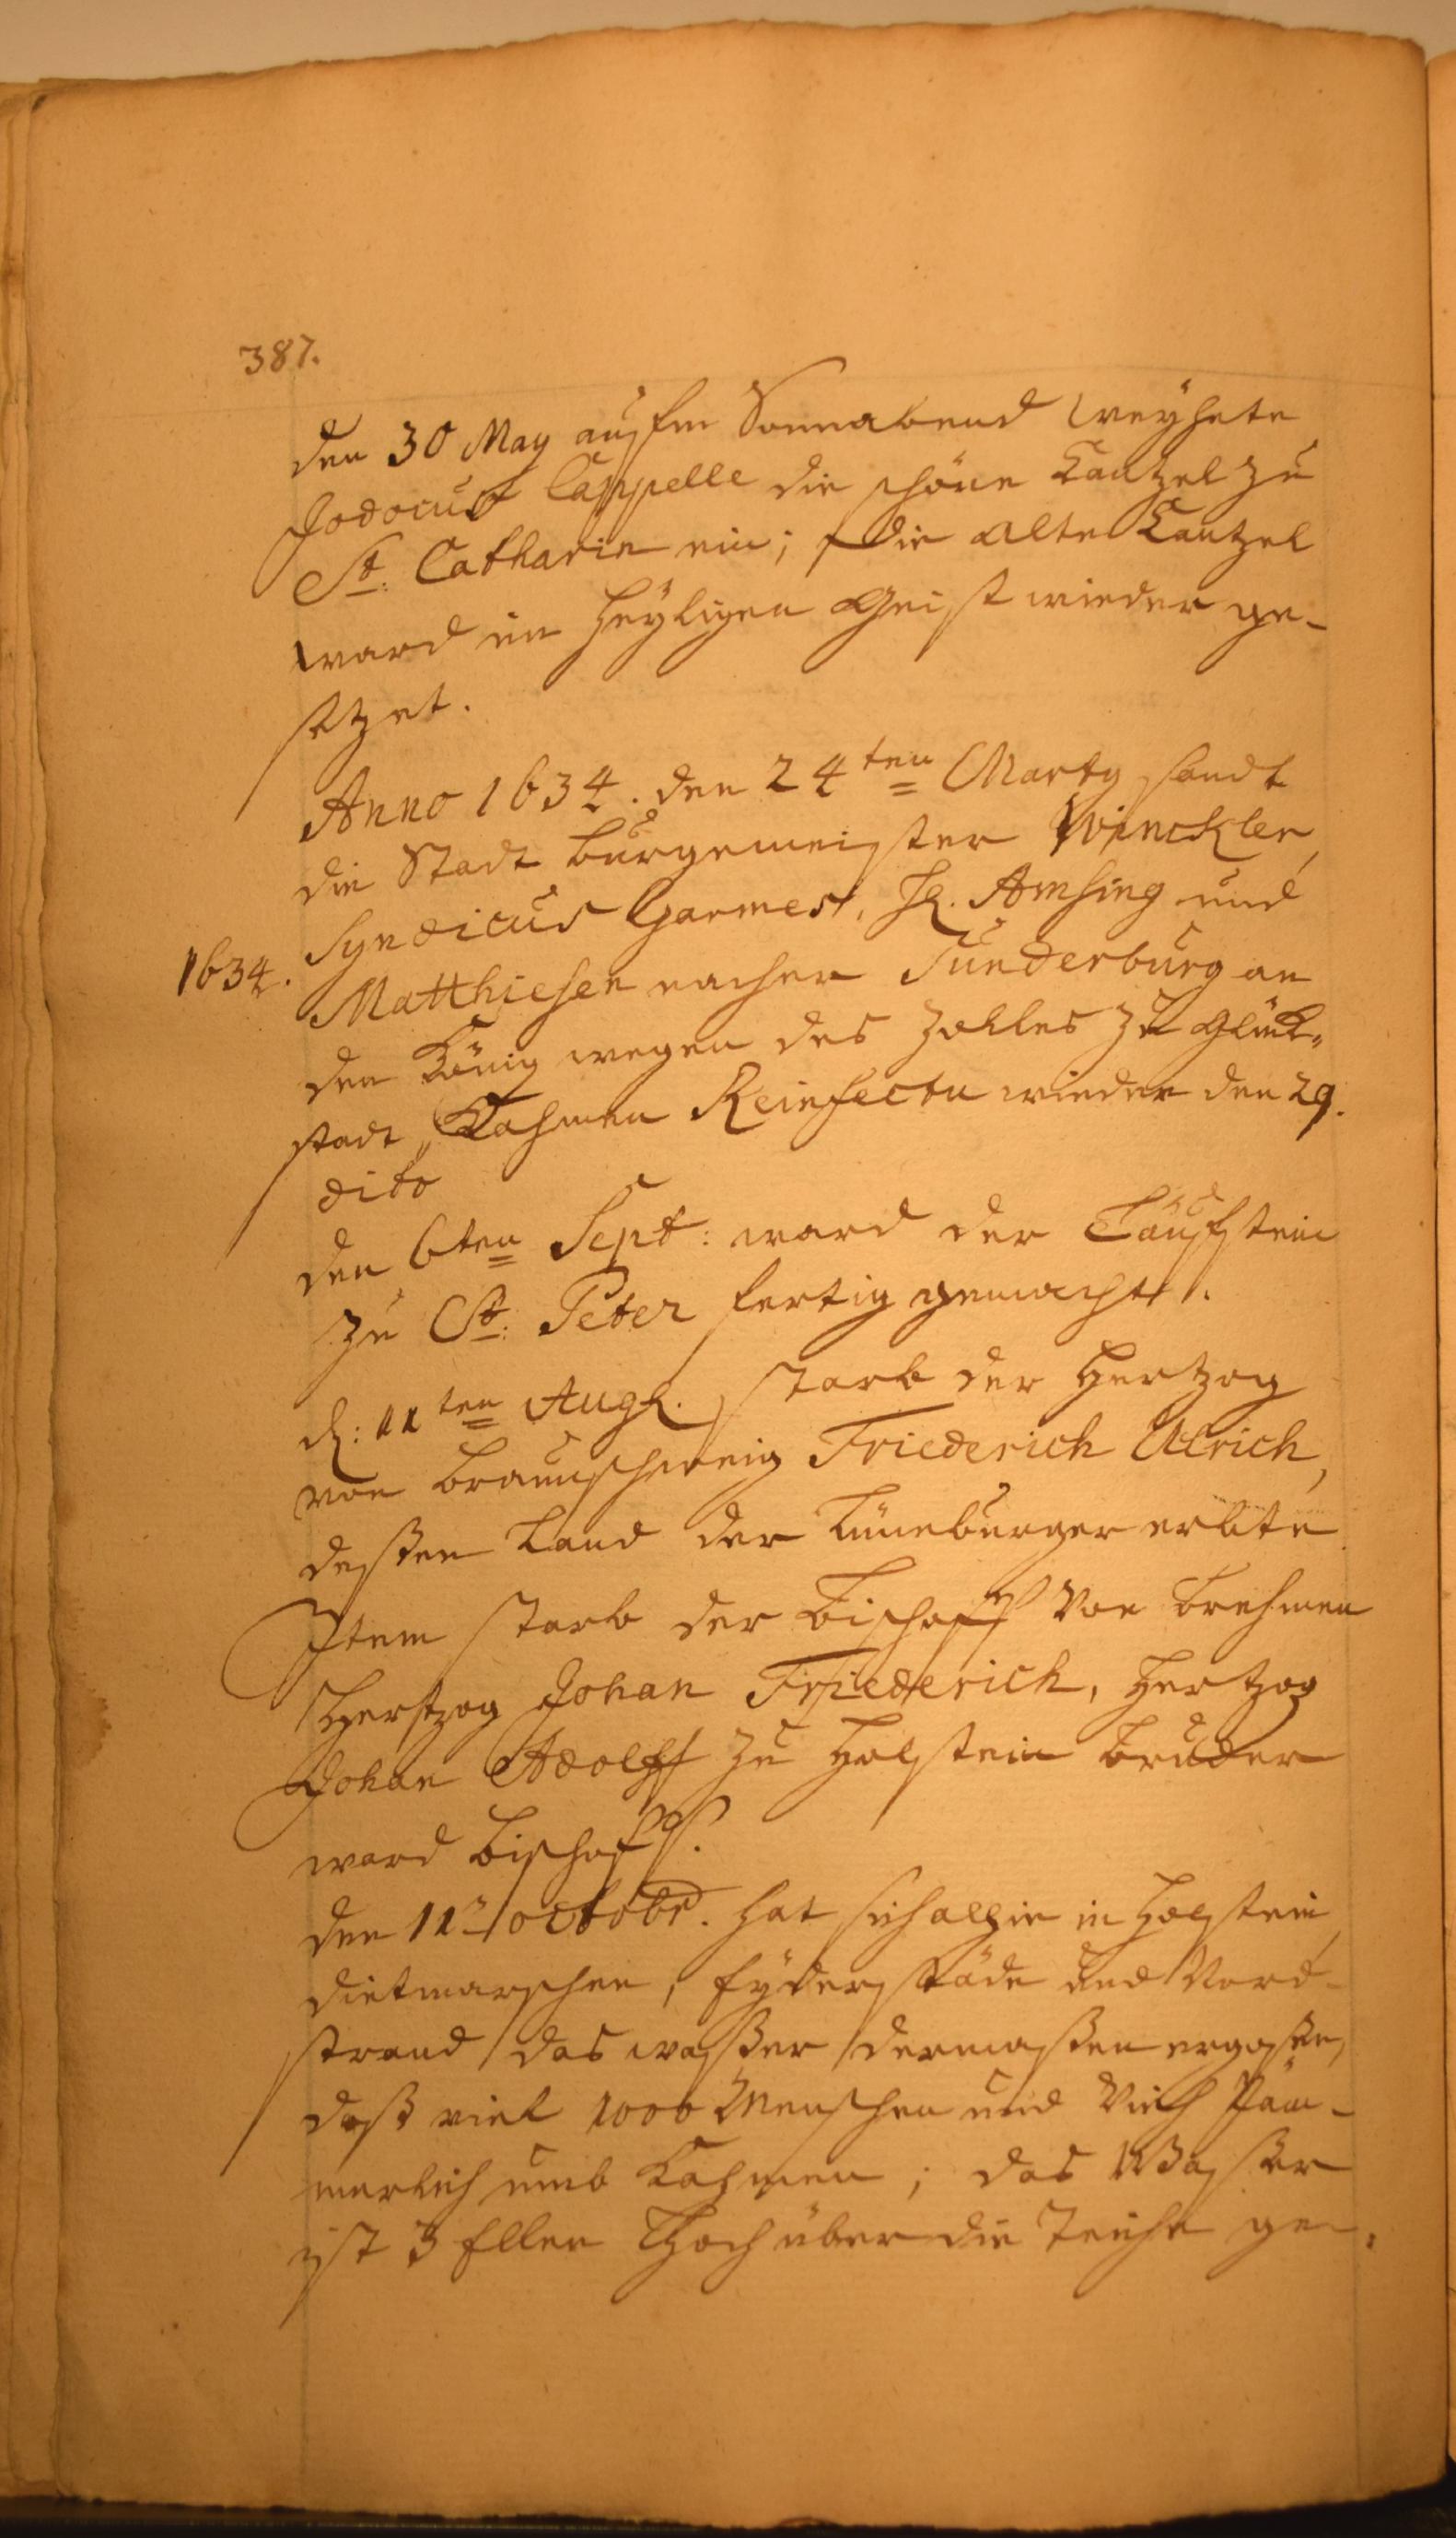 387.
den 30 May auffm Sonnabend weyhete
Jodocus Cappelle die schöne Cantzel zu
St. Catharin ein; die alte Cantzel
ward im Heyligen Geist wieder ge-
setzet.
Anno 1634. den 24ten Marty sandt
die Stadt Burgermeister Winckler,
Syndicus Garmes, H. Amsing und
1634.
Matthiesen nacher Sunderburg an
den König wegen des Zolles zu Glück-
stadt, Kahmen Reinfecta wieder den 29.
dito
den 6ten Sept: ward der Tauffstein
zu St: Peter fertig gemacht.
d: 11ten Aug. starb der Hertzog
von Braunschweig Friederich Ulrich,
deßen Land der Lüneburger erbte
Item starb der Bischoff von Brehmen
Hertzog Johan Friederich, Hertzog
Johan Adolff zu Holstein Bruder
ward Bischoff.
den 11 octobr. hat sich alhie in Holstein,
Dietmarschen, Eyderstäde und Nord-
strand das waßer dermaßen ergoßen,
daß viel 1000 Menschen und Vieh Jäm-
merlich umb Kahmen; das Waßer
ist 3 Ellen Hoch über die Teiche ge-